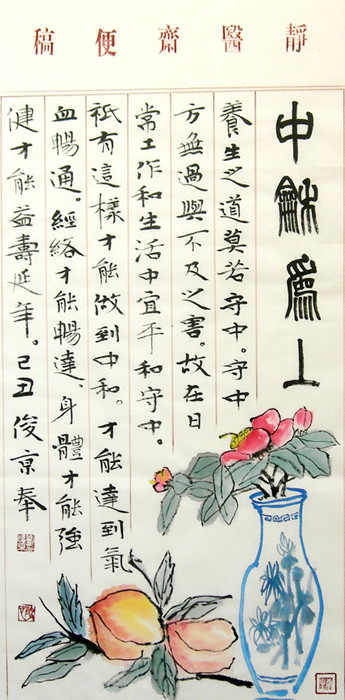 靜醫齋便稿
中龢為上
養生之道莫若守中。守中
方無過與不及之害。故在日
常工作和生活中宜平和守中。
祇有這樣才能做到中和。才能達到氣
血暢通。經絡才能暢達、身體才能強
健才能益壽延年。己丑俊京奉